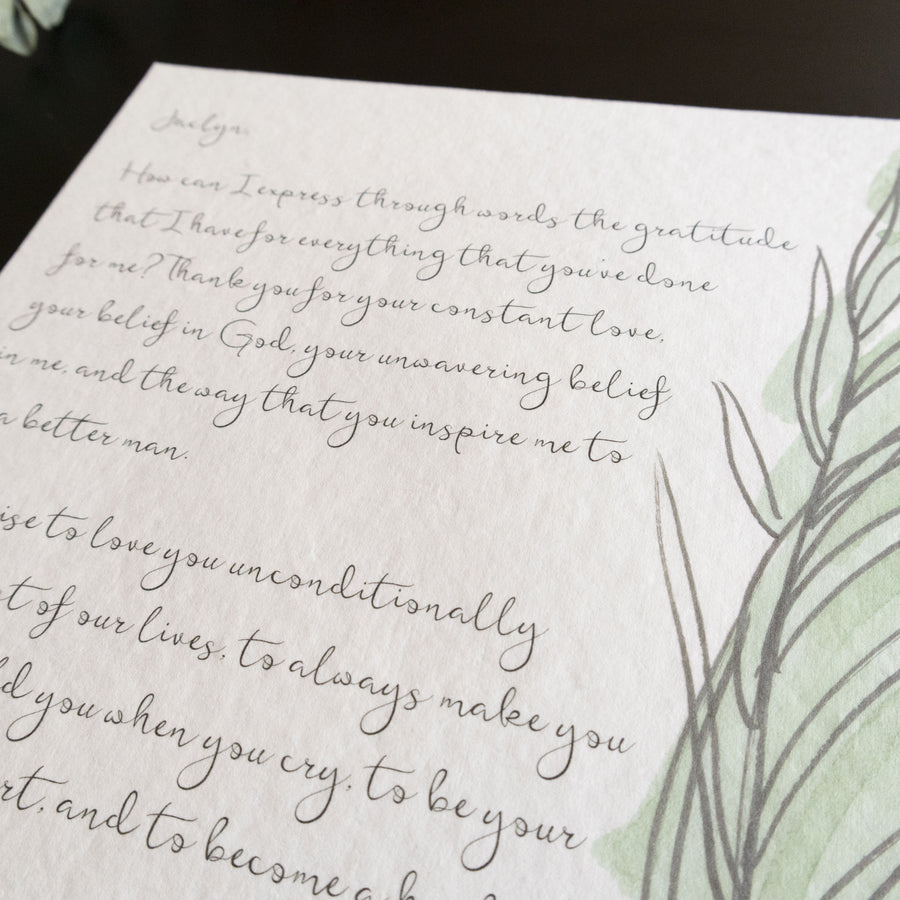 Jaclyn,
How can I express through words the gratitude
that I have for everything that you've done
for me? Thank you for your constant love,
your belief in God, your unwavering belief
in me, and the way that you inspire me to
a better man.
ise to love you unconditionally
of our lives, to always make you
you when you cry, to be your
rt, and to become a